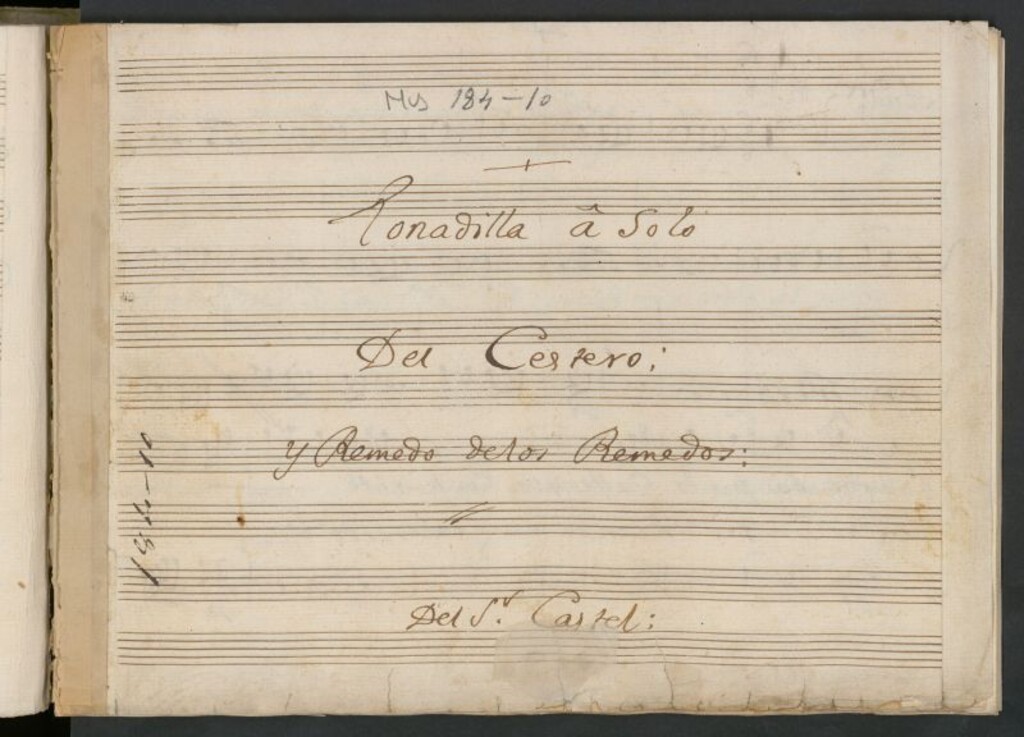 Mus 184-10
Tonadilla â Solo
Del Cestero;
y Remedo delos Remedos;
184-10
Del S.r Castel;